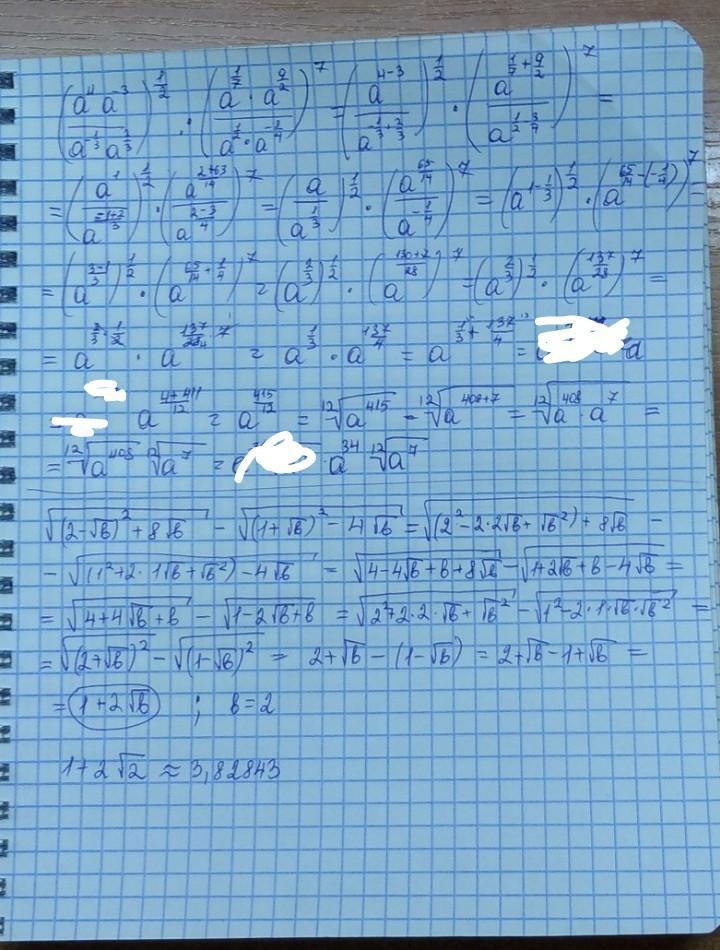 (a⁴ a⁻³ / a^(-1/3) a^(2/3))^(1/2) · (a^(1/7) · a^(9/2) / a^(1/2) · a^(-3/4))^7 = (a^(4-3) / a^(-1/3+2/3))^(1/2) · (a^(1/7+9/2) / a^(1/2-3/4))^7 =
= (a^1 / a^((-1+2)/3))^(1/2) · (a^((2+63)/14) / a^((2-3)/4))^7 = (a / a^(1/3))^(1/2) · (a^(65/14) / a^(-1/4))^7 = (a^(1-1/3))^(1/2) · (a^(65/14-(-1/4)))^7 =
= (a^((3-1)/3))^(1/2) · (a^(65/14+1/4))^7 = (a^(2/3))^(1/2) · (a^((130+7)/28))^7 = (a^(2/3))^(1/2) · (a^(137/28))^7 =
= a^(2/3·1/2) · a^(137/28·7) = a^(1/3) · a^(137/4) = a^(1/3+137/4) =
a^((4+411)/12) = a^(415/12) = ¹²√(a^415) = ¹²√(a^(408+7)) = ¹²√(a^408 · a^7) =
= ¹²√(a^408) ¹²√(a^7) = · a^34 ¹²√(a^7)
√((2-√b)²+8√b) - √((1+√b)²-4√b) = √((2²-2·2√b+√b²)+8√b) -
- √((1²+2·1√b+√b²)-4√b) = √(4-4√b+b+8√b) - √(1+2√b+b-4√b) =
= √(4+4√b+b) - √(1-2√b+b) = √(2²+2·2·√b+√b²) - √(1²-2·1·√b·√b²) =
= √((2+√b)²) - √((1-√b)²) = 2+√b-(1-√b) = 2+√b-1+√b =
= 1+2√b ; b=2
1+2√2 ≈ 3,82843